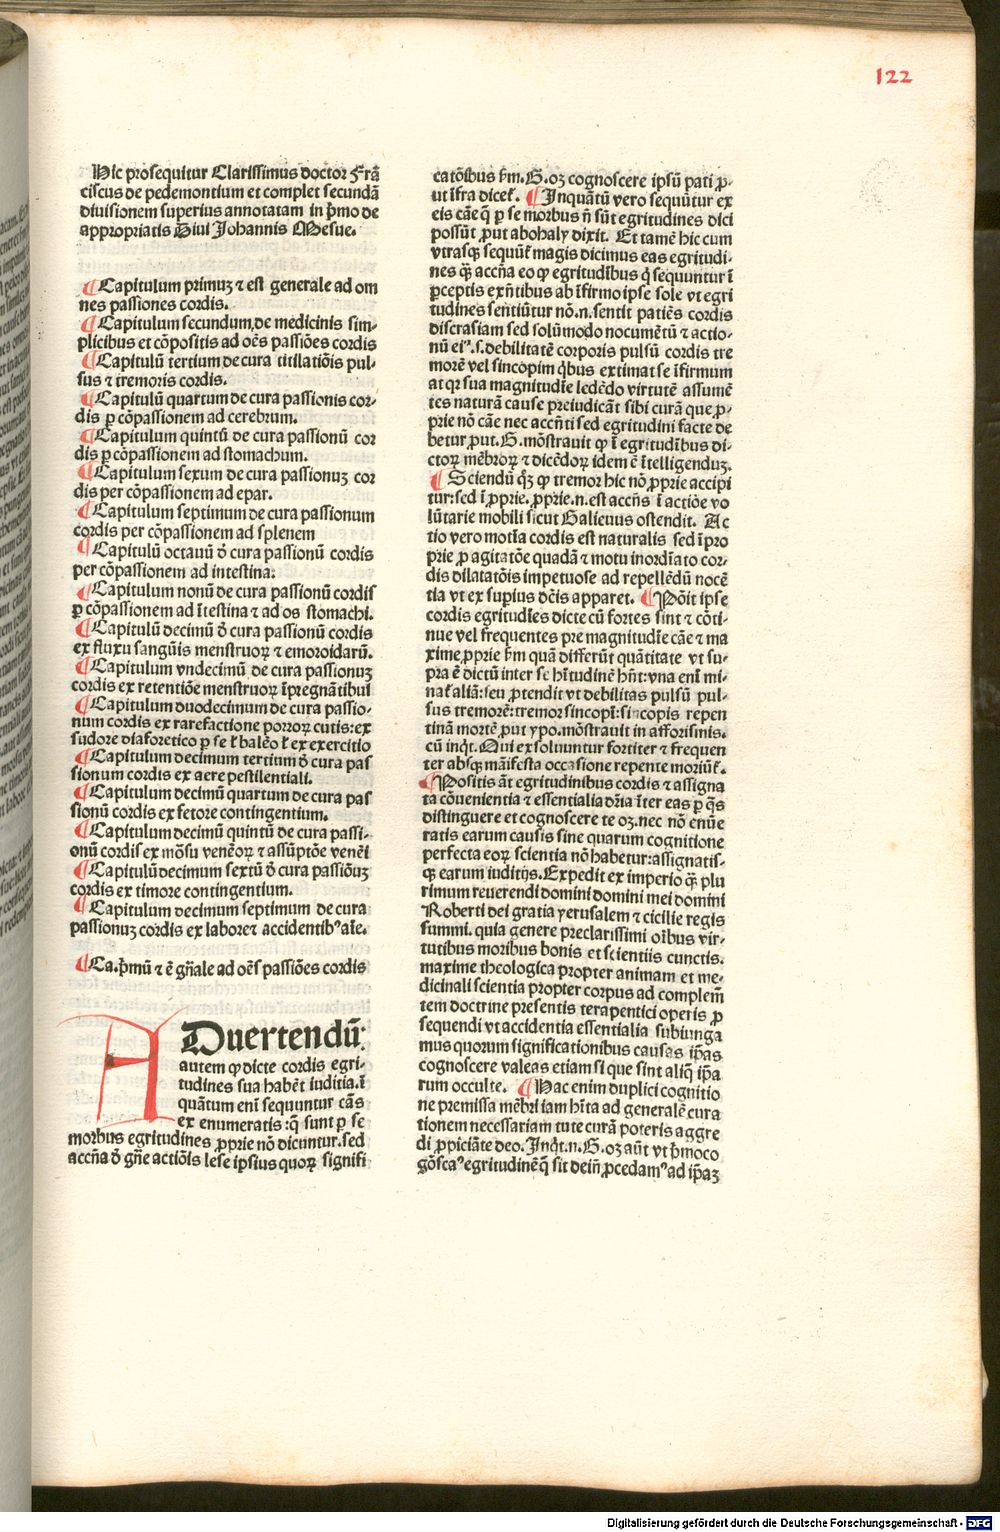 122
Hic prosequitur Clarissimus doctor Frā
ciscus de pedemontium et complet secundā
diuisionem superius annotatam in p̄mo de
appropriatis Diui Johannis Mesue.
¶ Capitulum primuꝫ ⁊ est generale ad om
nes passiones cordis.
¶ Capitulum secundum, de medicinis sim-
plicibus et cōpositis ad oēs passiōes cordis
¶ Capitulū tertium de cura titillatiōis pul-
sus ⁊ tremoris cordis.
¶ Capitulū quartum de cura passionis cor-
dis ꝑ cōpassionem ad cerebrum.
¶ Capitulum quintū de cura passionū cor
dis ꝑ cōpassionem ad stomachum.
¶ Capitulum sextum de cura passionuꝫ cor
dis per cōpassionem ad epar.
¶ Capitulum septimum de cura passionum
cordis per cōpassionem ad splenem
¶ Capitulū octauū ō cura passionū cordis
per cōpassionem ad intestina:
¶ Capitulum nonū de cura passionū cordis
ꝑ cōpassionem ad ītestina ⁊ ad os stomachi.
¶ Capitulū decimū ō cura passionū cordis
ex fluxu sangūis menstruoꝝ ⁊ emoroidarū.
¶ Capitulum vndecimū de cura passionuꝫ
cordis ex retentiōe menstruoꝝ īpregnātibus
¶ Capitulum duodecimum de cura passio-
num cordis ex rarefactione pororꝝ cutis: ex
sudore diaforetico ꝑ se ł balēo ł ex exercitio
¶ Capitulum decimum tertium ō cura pas
sionum cordis ex aere pestilentiali.
¶ Capitulum decimū quartum de cura pas
sionū cordis ex fetore contingentium.
¶ Capitulum decimū quintū de cura passi-
onū cordis ex mōsu venēoꝝ ⁊ assūptōe venēi
¶ Capitulū decimum sextū ō cura passiōuꝫ
cordis ex timore contingentium.
¶ Capitulum decimum septimum de cura
passionuꝫ cordis ex labore ⁊ accidentibꝰ aīe.
¶ Ca. p̄mū ⁊ ē gñale ad oēs passiōes cordis
ADuertendū:
autem ꝙ dicte cordis egri-
tudines sua habēt iuditia. ī
quātum enī sequuntur cās
ex enumeratis: q̄ sunt ꝑ se
morbus egritudines ꝓprie nō dicuntur. sed
accña ō gñe actiōis lese ipsius quoꝝ signifi
catōibus ẜm. G. oꝫ cognoscere ipsū pati ꝓ-
ut īfra diceꝉ. ¶ Inquātū vero sequūtur ex
eis cāe q̄ ꝑ se morbus ñ sūt egritudines dici
possūt ꝓut abohaly dixit. Et tamē hic cum
vtrasqꝫ sequūꝉ magis dicimus eas egritudi-
nes qꝫ accñа eo ꝙ egritudībus q̄ sequuntur ī
ꝑceptis exñtibus ab īfirmo ipse sole vt egri
tudines sentiūtur nō. n. sentit patiēs cordis
discrasiam sed solūmodo nocumētū ⁊ actio-
nū eiꝰ. s. debilitatē corporis pulsū cordis tre
morē vel sincopim q̄bus extimat se īfirmum
at qꝛ sua magnitudīe ledēdo virtutē assumē
tes naturā cause preiudicāt sibi curā que ꝓ-
prie nō cāe nec accñti sed egritudini facte de
betur ꝓut. G. mōstrauit ꝙ ī egritudībus di-
ctoꝝ mēbroꝝ ⁊ dicēdoꝝ idem ē ītelligenduꝫ.
¶ Sciendū qꝫ ꝙ tremor hic nō ꝓprie accipi
tur: sed ī ꝓprie. ꝓprie. n. est accñs ī actiōe vo
lūtarie mobili sicut Galienus ostendit. Ac
tio vero motīa cordis est naturalis sed īpro
prie ꝓ agitatōe quadā ⁊ motu inordīato cor-
dis dilatatōis impetuose ad repellēdū nocē
tia vt ex supius dēis apparet. ¶ Pōit ipse
cordis egritudīes dicte cū fortes sint ⁊ cōti-
nue vel frequentes pre magnitudīe cāe ⁊ ma
xime ꝓprie ẜm quā differūt quātitate vt su-
pra ē dictū inter se hītudinē hñt: vna enī mi-
naꝉ aliā: seu ꝓtendit vt debilitas pulsū pul-
sus tremorē: tremor sincopī: sincopis repen
tinā mortē ꝓut ypo. mōstrauit in afforismis.
cū inq̄t. Qui exsoluuntur fortiter ⁊ frequen
ter absqꝫ maīfesta occasione repente moriūꝉ.
¶ Positis āt egritudinibus cordis ⁊ assigna
ta cōuenientia ⁊ essentialia dr̄ia īter eas ꝑ q̄s
distinguere et cognoscere te oꝫ. nec nō enūe
ratis earum causis sine quarum cognitione
perfecta eoꝝ scientia nō habetur: assignatis-
qꝫ earum iuditijs. Expedit ex imperio qꝫ plu
rimum reuerendi domini domini mei domini
Roberti dei gratia yerusalem ⁊ cicilie regis
summi. quia genere preclarissimi oībus vir-
tutibus moribus bonis et scientiis cunctis.
maxime theologica propter animam et me-
dicinali scientia propter corpus ad complem̄
tem doctrine presentis terapentici operis ꝓ
sequendi vt accidentia essentialia subiunga
mus quorum significationibus causas ip̄as
cognoscere valeas etiam si que sint aliq̄ ip̄a
rum occulte. ¶ Hac enim duplici cognitio
ne premissa mēbri iam hīta ad generalē cura
tionem necessariam tute curā poteris aggre
di ꝓpiciāte deo. Inq̄t. n. G. oꝫ aūt vt p̄mo co
gōscaꝰ egritudinē q̄ sit deiñ ꝓcedamꝰ ad ip̄aꝫ
Digitalisierung gefördert durch die Deutsche Forschungsgemeinschaft - DFG